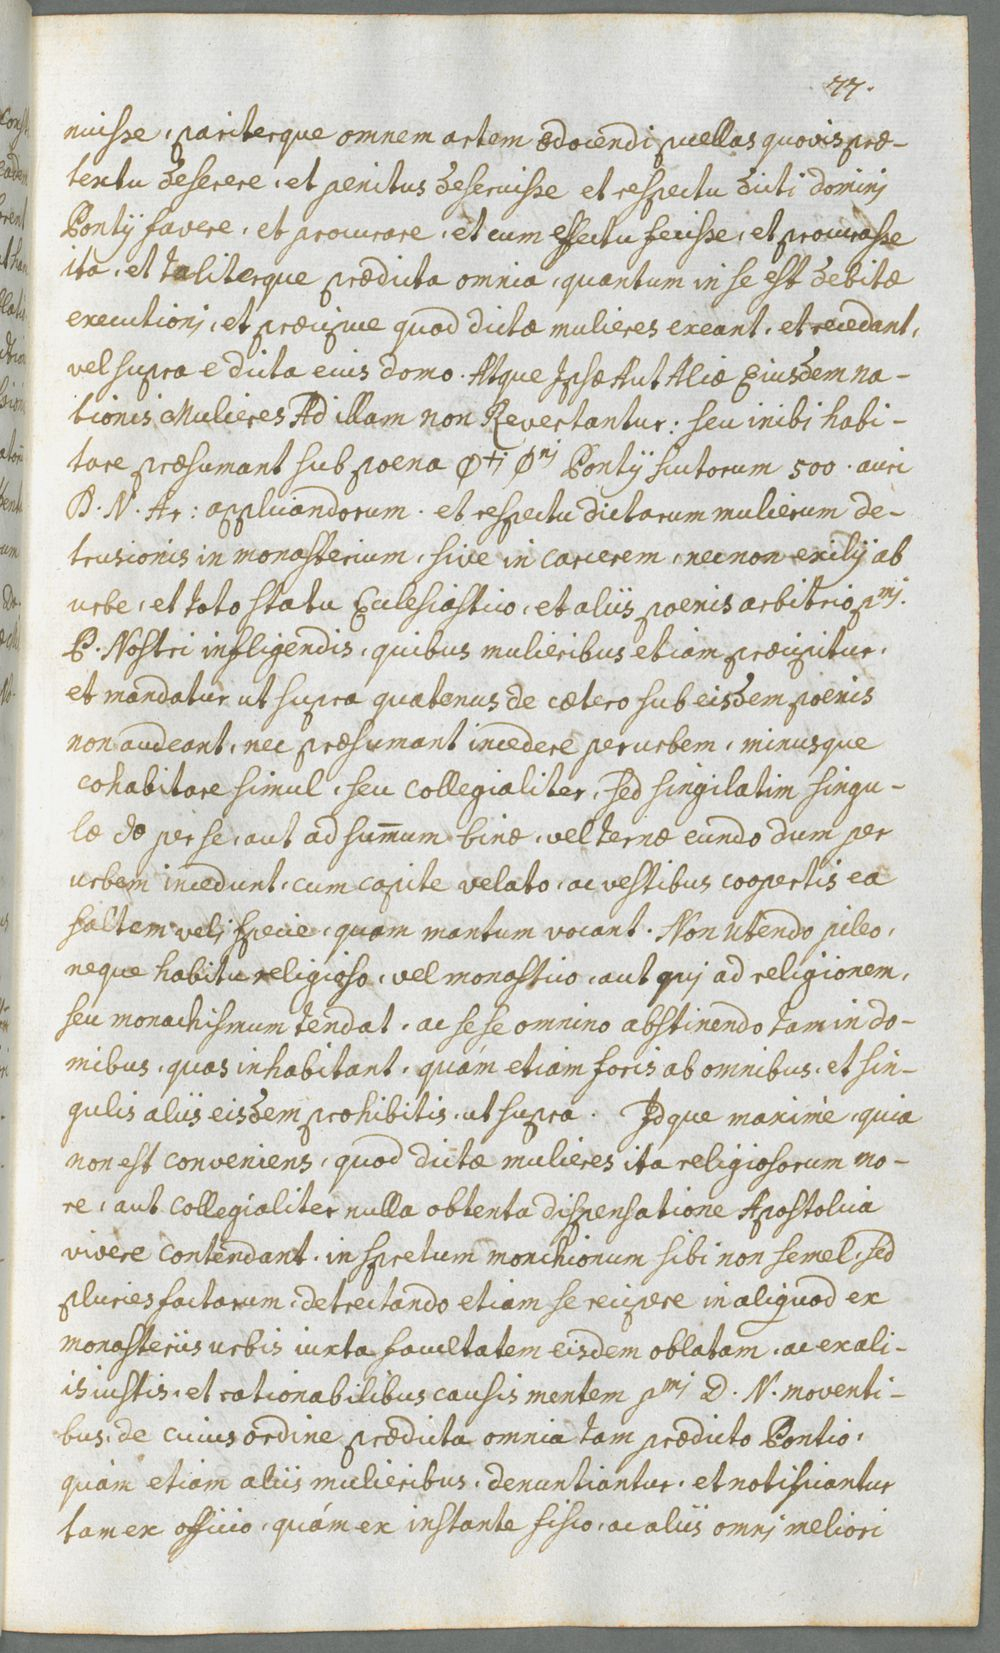 77.
nuisse, pariterque omnem artem ædocendi puellas quovis præ-
textu deserere, et penitus deseruisse et respectu dicti dominj
Pontij favere, et procurare, et cum effectu fecisse, et procurasse
ita, et taliterque prædicta omnia, quantum in se est debitæ
executionj, et præcipue quod dictæ mulieres exeant, et recedant,
vel supra e dicta eius domo. Atque Ipsæ Aut Aliæ Eiusdem na-
tionis Mulieres Ad illam non Revertantur: seu inibi habi-
tare præsumant sub poena Pontij scutorum 500. auri
D. N. Ar: applicandorum. et respectu dictarum mulierum de-
trusionis in monasterium, sive in carcerem, necnon exilij ab
urbe, et toto statu Ecclesiastico, et aliis poenis arbitrio pmj.
P. Nostri infligendis, quibus mulieribus etiam præcipitur,
et mandatur ut supra quatenus de cætero sub eisdem poenis
non audeant, nec præsumant incedere per urbem, minusque
cohabitare simul, seu collegialiter, sed singilatim singu-
læ de per se, aut ad sum̄um binæ, vel ternæ eundo dum per
urbem incedunt, cum capite velato, ac vestibus coopertis ea
saltem velj specie, quam mantum vocant. Non utendo pileo,
neque habitu religioso, vel monastico, aut quj ad religionem,
seu monachismum tendat, ac sese omnino abstinendo tam in do-
mibus, quas inhabitant, quám etiam foris ab omnibus, et sin-
gulis aliis eisdem prohibitis, ut supra. Idque maximè, quia
non est conveniens, quod dictæ mulieres ita religiosorum mo-
re, aut collegialiter nulla obtenta dispensatione Apostolica
vivere contendant, in spretum monitionum sibi non semel, sed
pluries factarum, detrectando etiam se recipere in aliquod ex
monasteriis urbis iuxta facultatem eisdem oblatam, ac ex ali-
is iustis, et rationabilibus causis mentem pmj D. N. moventi-
bus, de cuius órdine prædicta omnia tam prædicto Pontio,
quám etiam aliis mulieribus, denuntiantur, et notificantur
tam ex officio, quám ex instante fisco, ac aliis omnj meliori